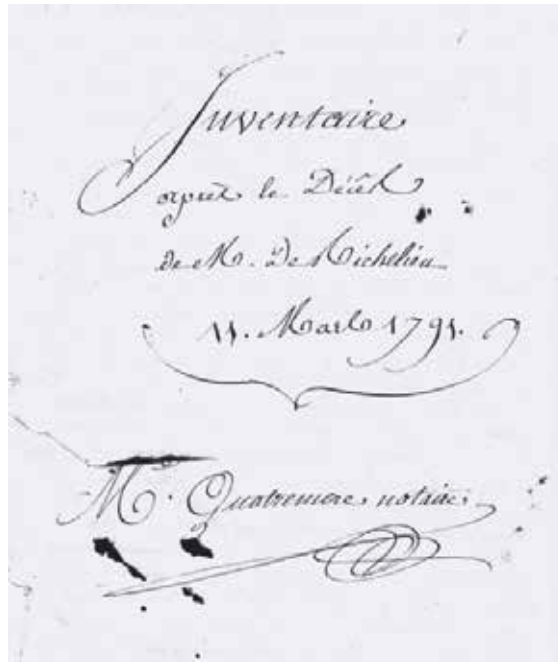 Inventaire
après le Décès
de M. De Richelieu
11. Mars 1791.
M. Quatremere notaire